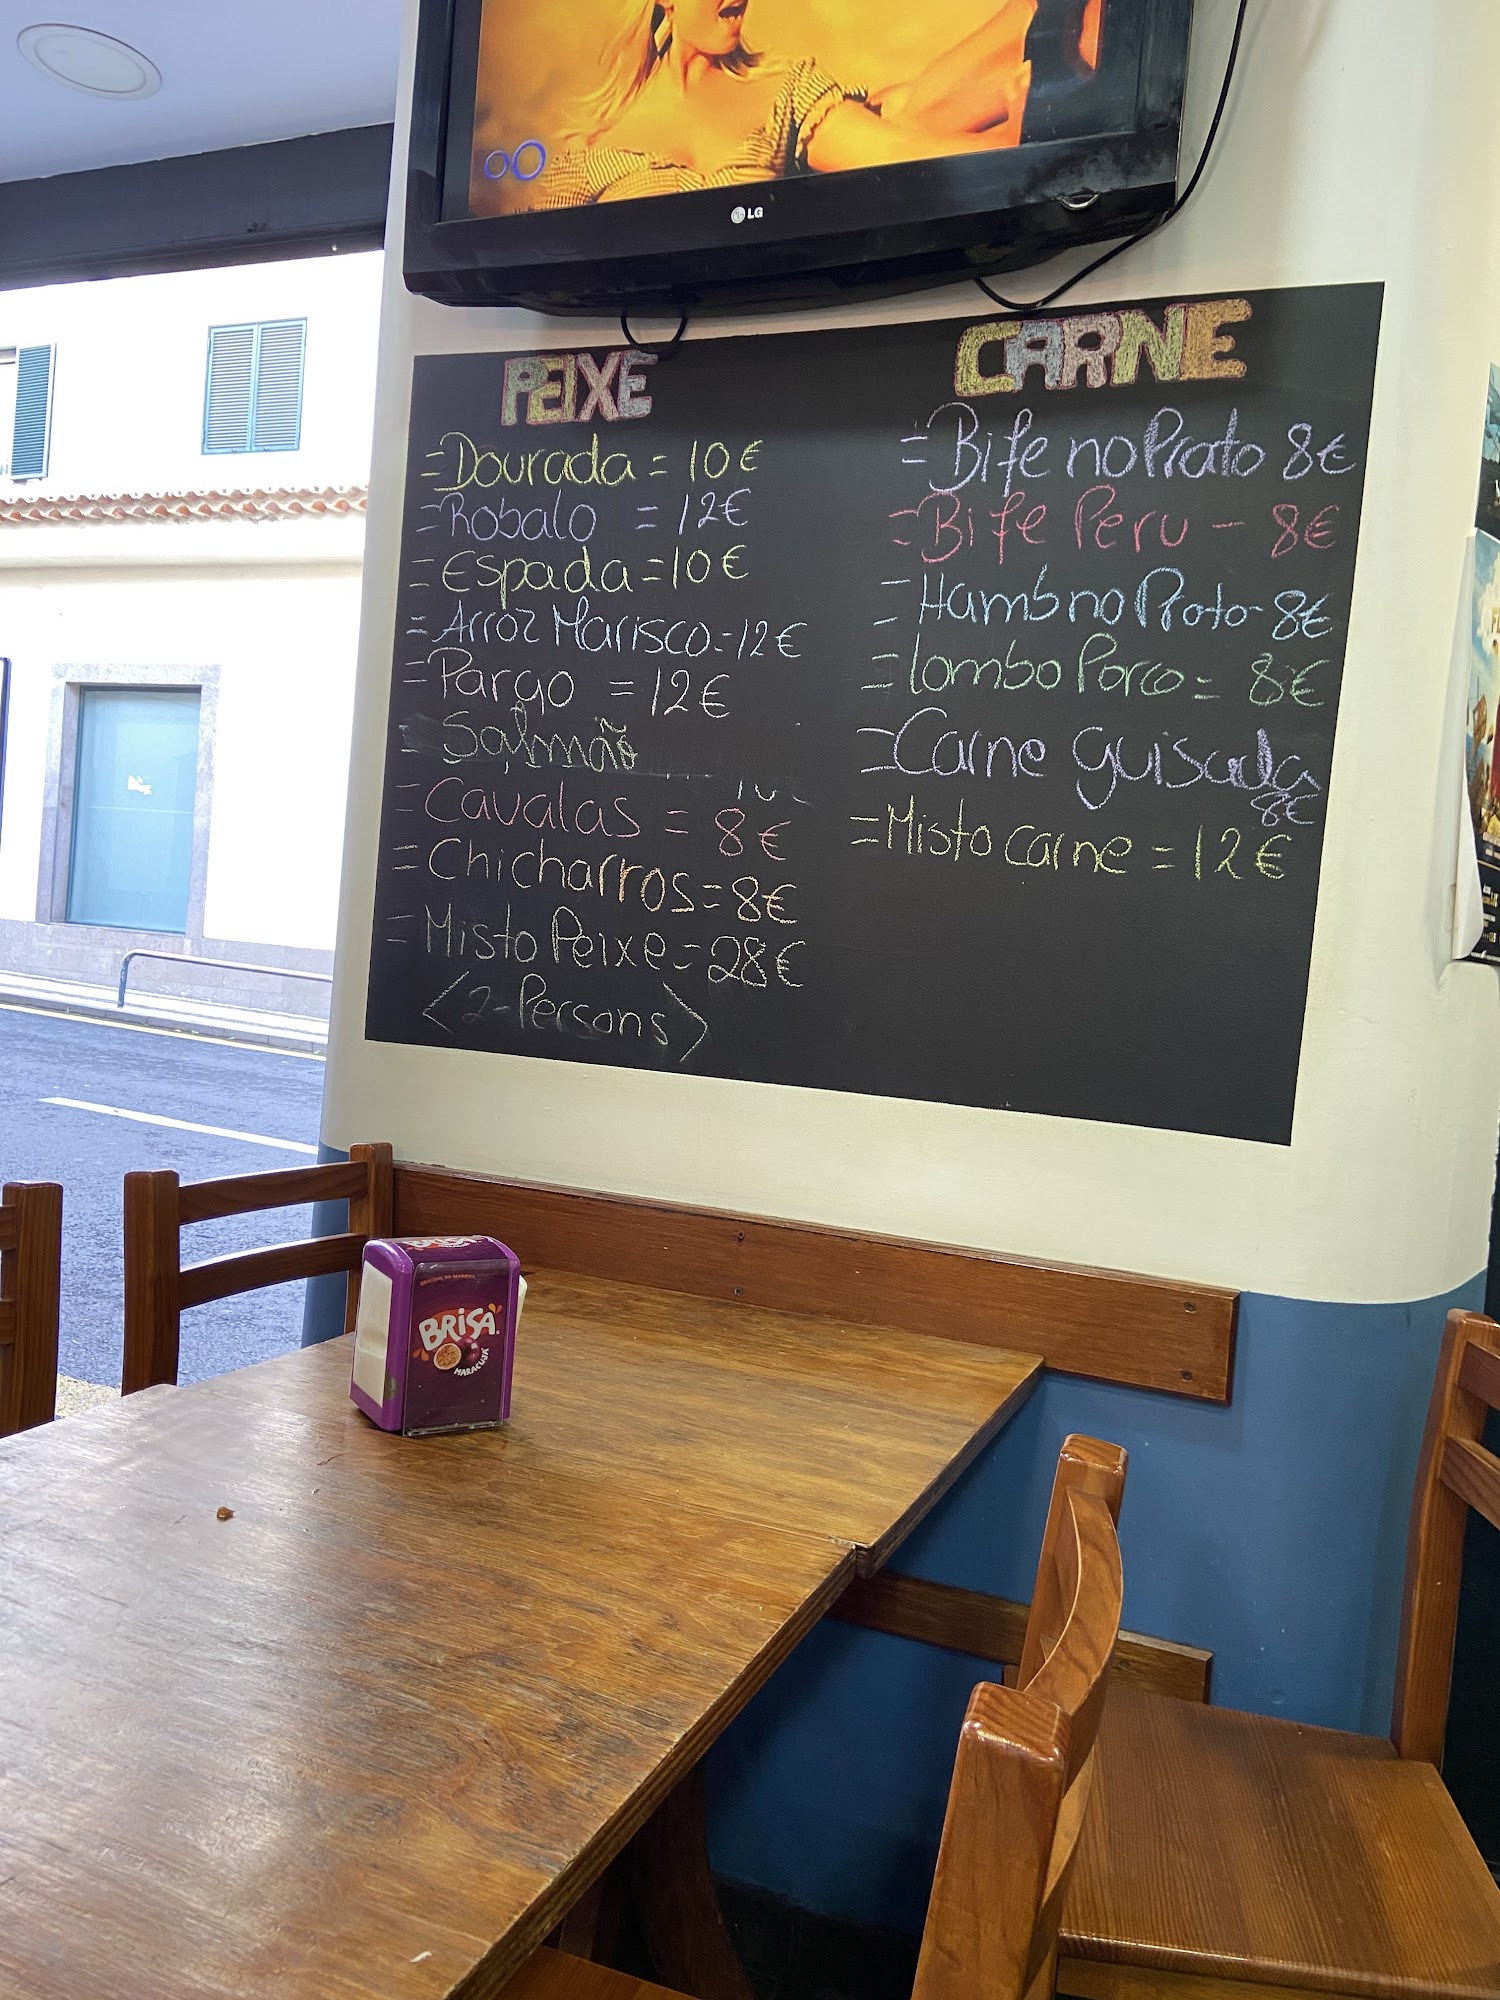 LG
PEIXE
=Dourada = 10€
=Robalo = 12€
=Espada = 10€
=Arroz Marisco = 12€
=Pargo = 12€
=Salmão
=Cavalas = 8€
=Chicharros = 8€
=Misto Peixe = 28€
<2-Persons>
CARNE
=Bife no Prato 8€
=Bife Peru - 8€
=Hamb no Prato - 8€
=lombo Porco = 8€
=Carne guisada
8€
=Misto carne = 12€
BRISA
BRISA
MARACUJÁ